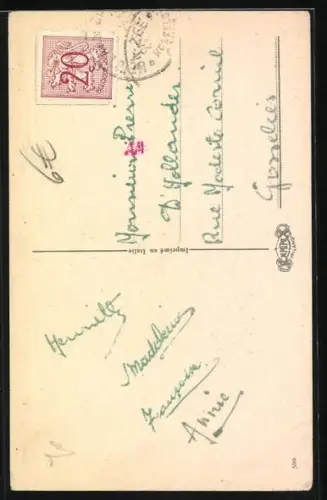 20
6€
Monsieur Pierre
D'Hollander
Rue Modeste Cornil
Gosselies
Imprimé en Italie
Henriette
Madeleine
Françoise
Annie
500